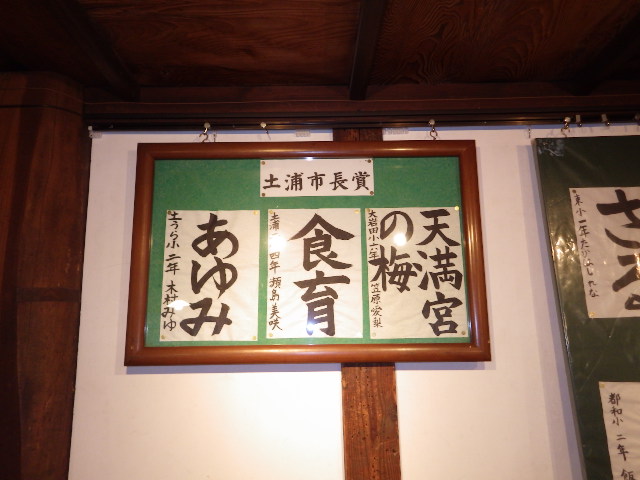 土浦市長賞
天満宮
の梅
大岩田小六年 笠原愛梨
食育
四年 飯島美咲
あゆみ
土うら小 二年 木村みゆ
さる
東小 一年
都和小 二年 飯